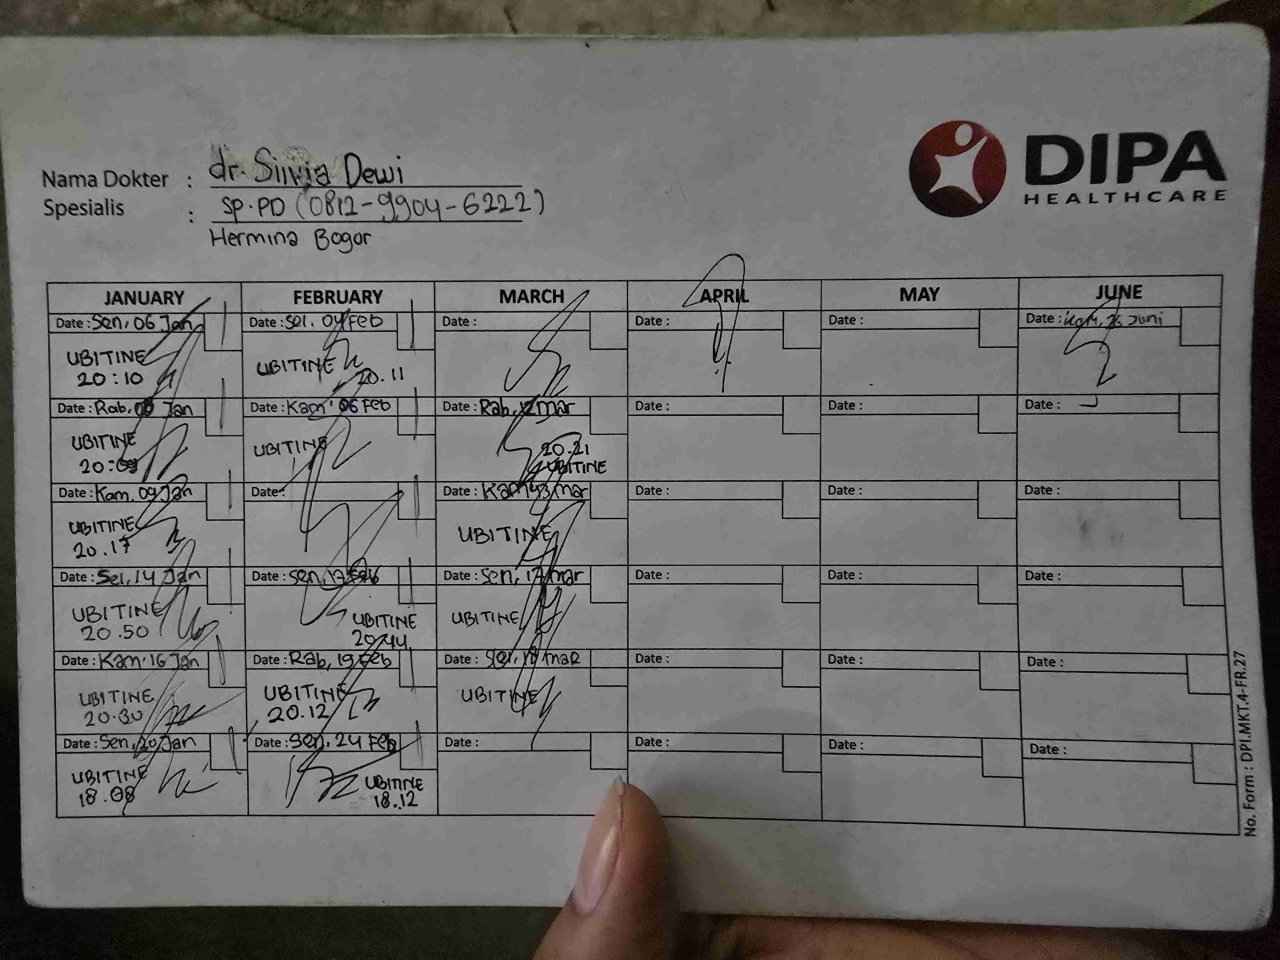 DIPA
HEALTHCARE
Nama Dokter : dr. Silvia Dewi
Spesialis : SP.PD (0812-9904-6222)
Hermina Bogor
JANUARY FEBRUARY MARCH APRIL MAY JUNE
Date : Sen, 06 Jan Date : Sel. 04 Feb Date : Date : Date : Date : Juni
UBITINE UBITINE
20:10 20.11
Date : Rab, 08 Jan Date : Kam' 06 Feb Date : Rab, 12 Mar Date : Date : Date :
UBITINE UBITINE 20.21
20:09 UBITINE
Date : Kam, 09 Jan Date : Date : Kam 13 mar Date : Date : Date :
UBITINE UBITINE
20.17
Date : Sel, 14 Jan Date : Sen, 17 Feb Date : Sen, 17 mar Date : Date : Date :
UBITINE UBITINE UBITINE
20.50 20.44
Date : Kam' 16 Jan Date : Rab, 19 Feb Date : Sel, 18 mar Date : Date : Date :
UBITINE UBITINE UBITINE
20.30 20.12
Date : Sen, 20 Jan Date : Sen, 24 Feb Date : Date : Date : Date :
UBITINE UBITINE
18.08 18.12
No. Form : DPI.MKT.4-FR.27